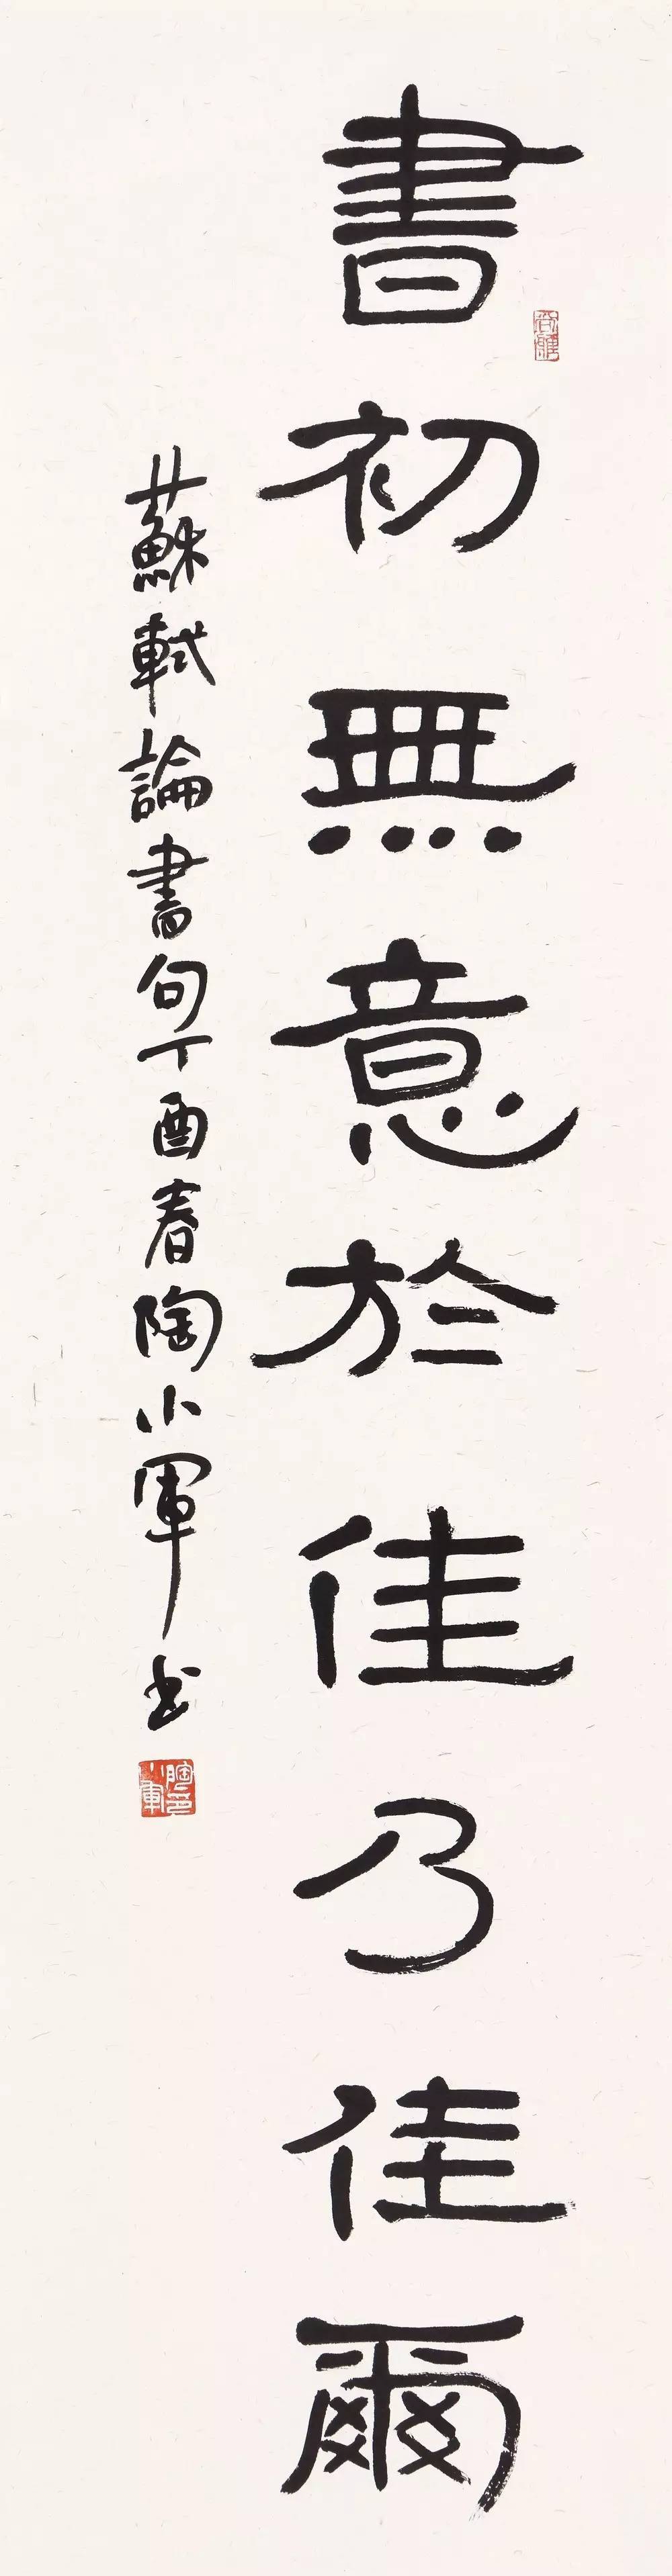 書初無意於佳乃佳爾
蘇軾論書句丁酉春陶小軍书
陶小軍印